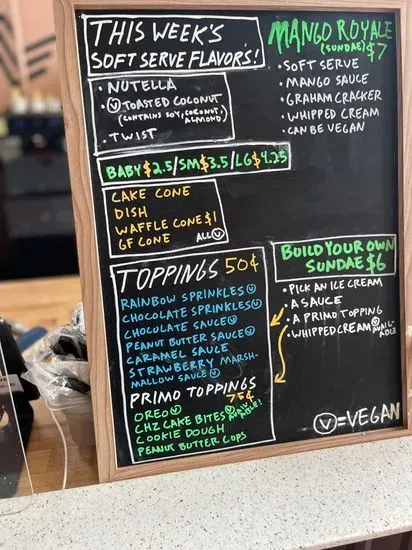 THIS WEEK'S
SOFT SERVE FLAVORS!
• NUTELLA
• Ⓥ TOASTED COCONUT
(CONTAINS SOY, COCONUT,
ALMOND)
• TWIST
BABY $2.5/SM $3.5/LG $4.25
CAKE CONE
DISH
WAFFLE CONE $1
GF CONE ALL Ⓥ
TOPPINGS 50¢
RAINBOW SPRINKLES Ⓥ
CHOCOLATE SPRINKLES Ⓥ
CHOCOLATE SAUCE Ⓥ
PEANUT BUTTER SAUCE Ⓥ
CARAMEL SAUCE
STRAWBERRY MARSH-
MALLOW SAUCE Ⓥ
PRIMO TOPPINGS
75¢
OREO Ⓥ
CHZCAKE BITES Ⓥ AVAILABLE!
COOKIE DOUGH
PEANUT BUTTER CUPS
MANGO ROYALE
(SUNDAE) $7
• SOFT SERVE
• MANGO SAUCE
• GRAHAM CRACKER
• WHIPPED CREAM
• CAN BE VEGAN
BUILD YOUR OWN
SUNDAE $6
• PICK AN ICE CREAM
• A SAUCE
• A PRIMO TOPPING
• WHIPPED CREAM Ⓥ AVAIL-
ABLE
Ⓥ = VEGAN